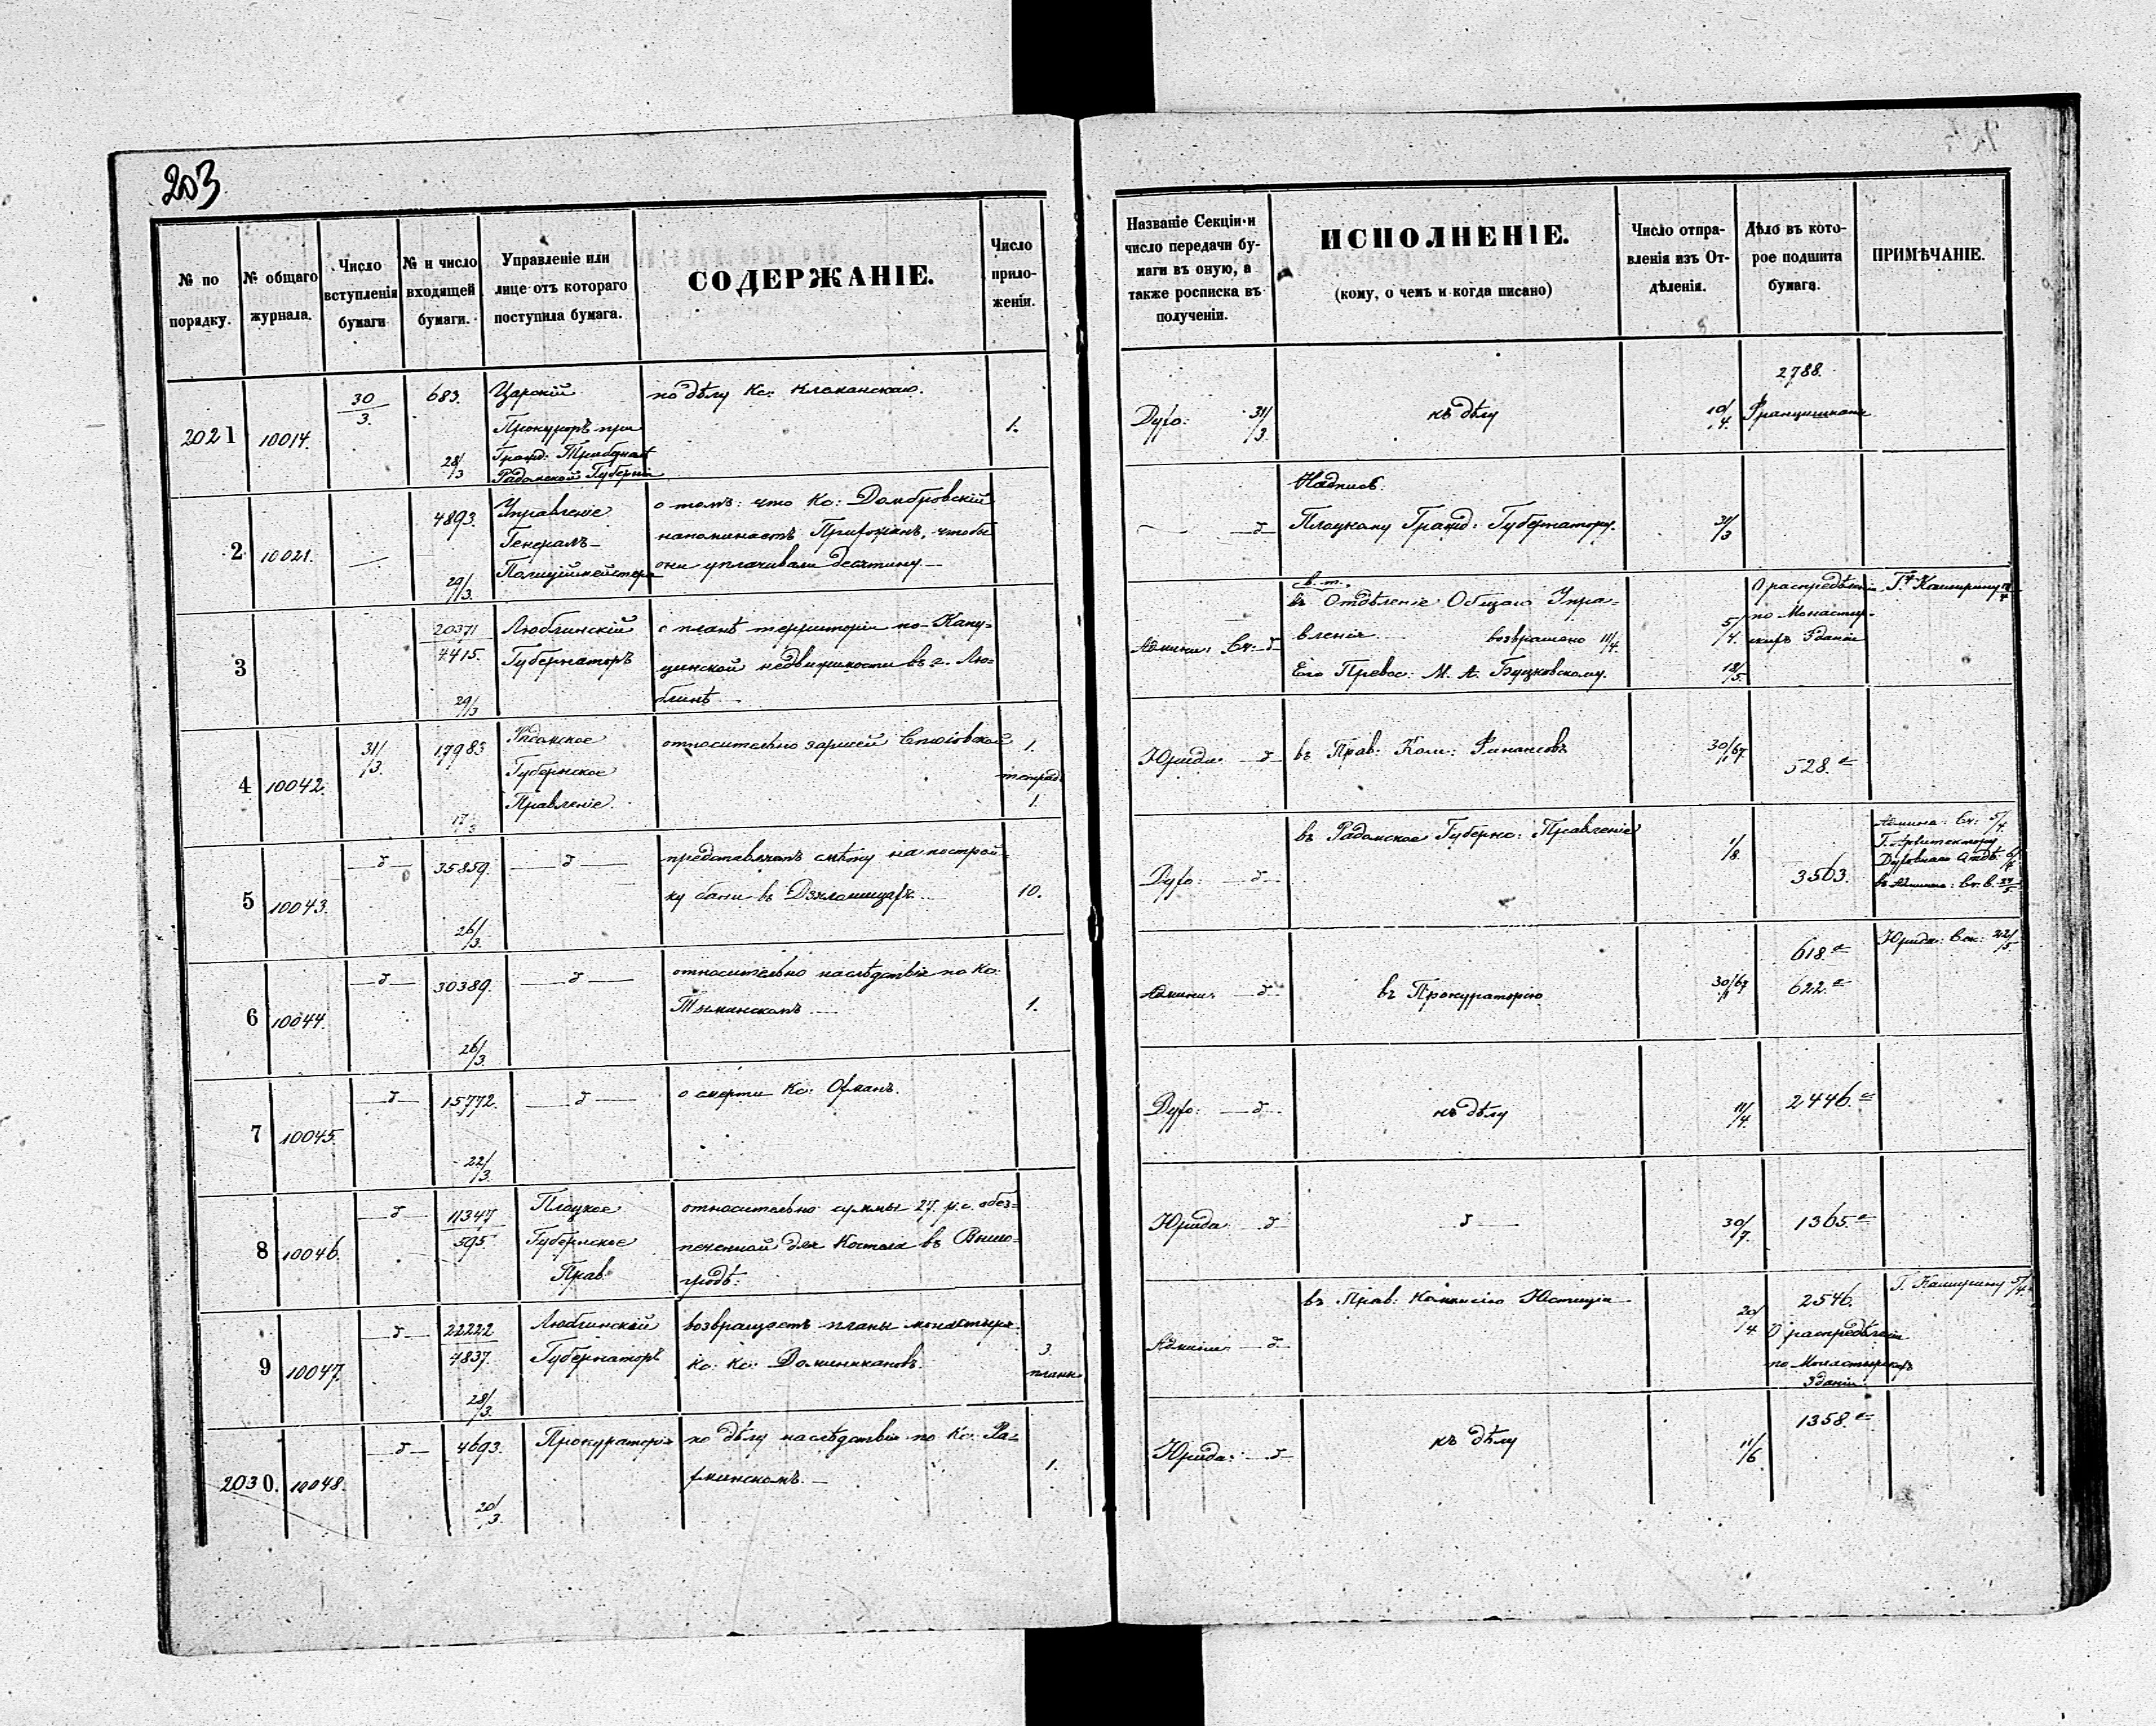 203
№ по порядку.
№ общаго журнала.
Число вступленія бумаги
№ и число входящей бумаги.
Управленіе или лице отъ котораго поступила бумага.
СОДЕРЖАНІЕ.
Число приложеній.
Названіе Секціи и число передачи бумаги въ оную, а также росписка въ полученіи.
ИСПОЛНЕНІЕ.
(кому, о чемъ и когда писано)
Число отправленія изъ Отдѣленія.
Дѣло въ которое подшита бумага.
ПРИМѢЧАНІЕ.
2021
10014.
30/3.
683.
28/3
Царскій
Прокуроръ при
Гражд: Трибуналѣ
Радомской Губерніи
по дѣлу Кс:
1.
Духо: 31/3.
къ дѣлу
10/4.
2788.
Францишкана
2
10021.
4893.
29/3.
Управленіе
Генералъ-
Полицiймейстера
о томъ: что Кс: Домбровскій
напоминаетъ Прихожанъ, чтобы
они уплачивали десятину
Надпись.
Плоцкому Гражд: Губернатору.
31/3
3
20371
4415.
29/3
Люблинскій
Губернаторъ
о планѣ территоріи по-Капу-
цинской недвижимости въ г. Лю-
блинѣ
Админи: Ск: д
въ Отдѣленіе Общаго Упра-
вленія возвращено 11/4.
Его Превос: М. А. Буцковскому.
5/4.
18/5.
О распредѣленіи
по Монастыр-
скихъ Зданіи
Г. Каширину
4
10042.
31/3.
17983
17/3
Радомское
Губернское
Правленіе.
относительно
1.
тетрадь
1.
Юриди: д
въ Прав: Ком: Финансовъ
30/67.
528.
5
10043.
д
35859.
26/3.
д
представляетъ смѣту на построй-
ку бани въ
10.
Духо: д
въ Радомское Губернс: Правленіе
1/8.
3563.
Админи: Ск: 5/4.
Г. Архитектору
Духовнаго Отдѣ:
6
10044.
д
30389.
26/3.
д
относительно наслѣдствія по Кс:
1.
Админи: д
въ Прокураторію
30/67
618
622.
Юриди: Сек: 22/5
7
10045.
д
15772.
22/3.
д
о смерти Кс: Офманъ.
Духо: д
къ дѣлу
11/4.
2446.
8
10046.
д
11347
595.
Плоцкое
Губернское
Прав:
относительно суммы 27. р. с. обез-
печенной для Костела въ Вышо-
гродѣ:
Юриди: д
д
30/7.
1365.
9
10047.
д
22222
4837.
28/3.
Люблинскій
Губернаторъ
возвращаетъ планы монастыря
Кс: Кс: Доминикановъ.
3.
плана
Админи: д
въ Прав: Коммисію Юстиціи
20/4
2546.
О распредѣленіи
по Монастырскихъ
Зданіи
Г. Каширину 5/4
2030.
10048.
д
4693.
20/3.
Прокураторія
по дѣлу наслѣдствія по Кс:
1.
Юриди: д
къ дѣлу
11/6
1358.